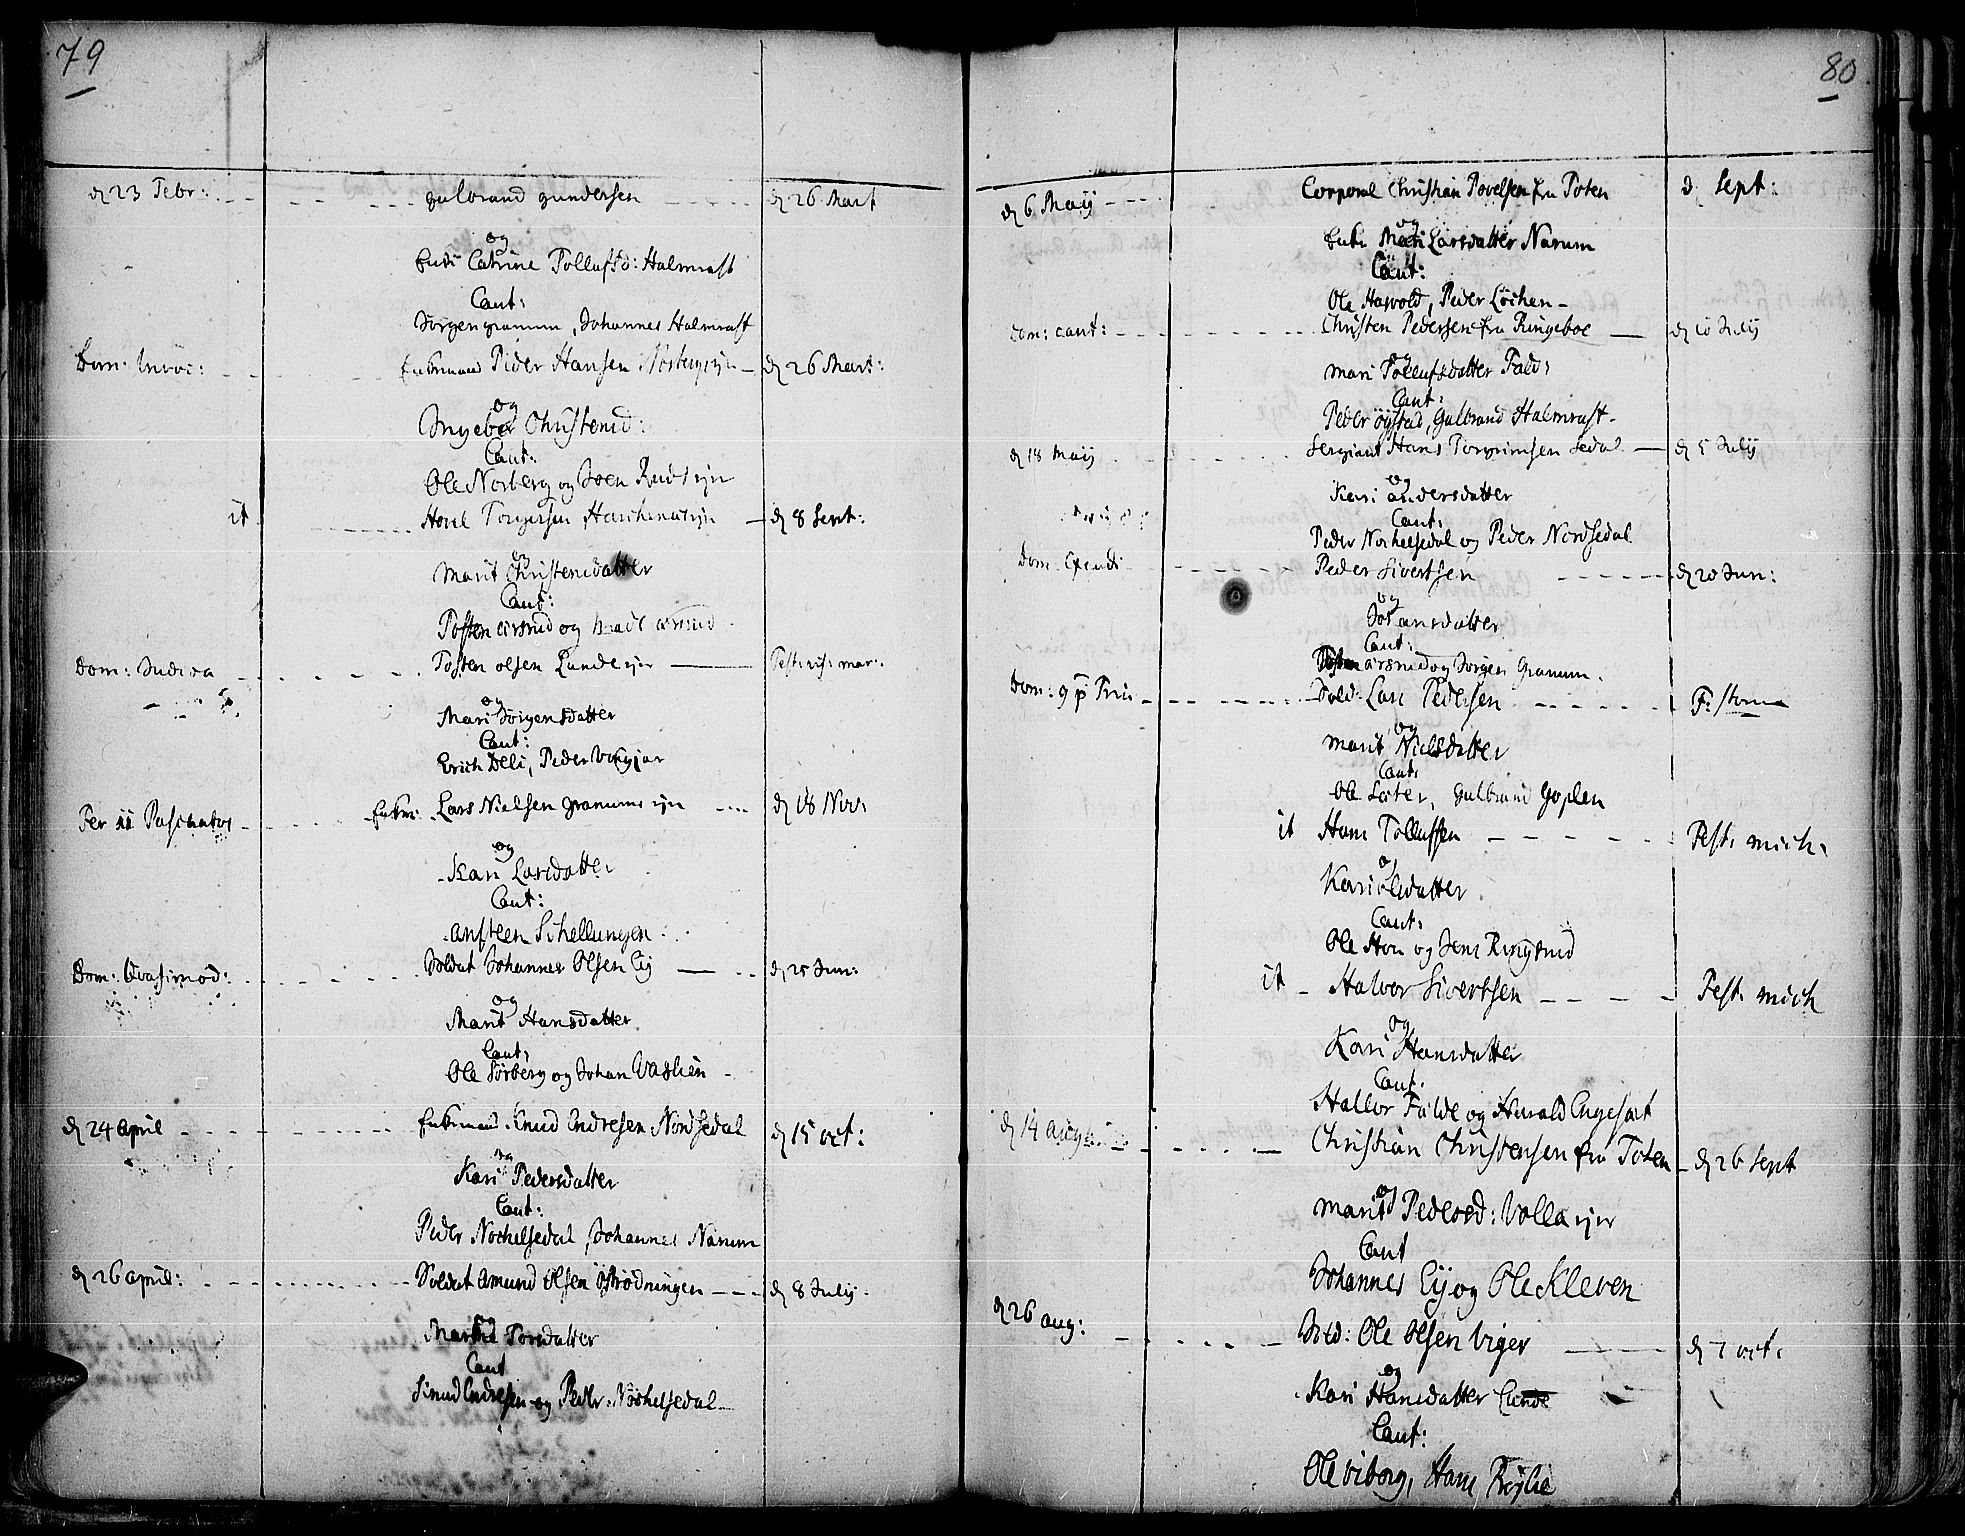 79
d 23 Febr: Gulbrand Gundersen d 26 Mart
og
Enke Catrine Tollufsd: Halmrast
Caut:
Jörgen granum, Johannes Halmrast
Dom: Invoc: Enkemand Peder Hansen d 26 Mart:
og
Ingebor Christensd:
Caut:
Ole Norberg og Joen
it Torgersen d 8 Sept:
og
Marit Christensdatter
Caut:
Posten og
Dom: Judica Tosten olsen Lunde ejer Fest: vis: mar:
og
Mari Jörgensdatter
Caut:
Erich Deli, Peder
Fer ii Paschatos Enkm: Lars Nielsen granums ejer d 18 Nov:
og
Kari Larsdatter
Caut:
ansteen Schellungen
Dom: Qvasimod: Soldat Johannes Olsen Eij d 25 Jun:
og
Marit Hansdatter
Caut:
Ole Sörberg og Johan
d 24 April Enkemand Knud Endresen Nordsedal d 15 oct:
og
Kari Pedersdatter
Caut:
Peder Nöchelsedal, Johannes Narum
d 26 april: Soldat Amund Olsen d 8 Julÿ
og
Marthe Torsdatter
Caut
Knud Endresen og Peder Nöchelsedal
80
d 6 Maÿ Corporal Christian Povelsen fra Toten d Sept:
og
Enke Mari Larsdatter Narum
Caut:
Ole Havold, Peder Löchen
Dom: cant: Christen Pedersen fra Ringeboe d 10 Julÿ
og
Mari Tollufsdatter Fald:
Caut:
Peder öÿstad, Gulbrand Halmrast
d 18 Maÿ Sergiant Hans Torgrimsen Sedal d 5 Julÿ
og
Kari andersdatter
Caut:
Peder Nöchelsedal og Peder Nordsedal
Dom: Exaudi Peder Sivertsen d 20 Jun:
og
Caut:
Tosten og Jörgen Granum
Dom: 9 p Trin Sold: Lars Pedersen
og
Marit Nielsdatter
Caut:
Ole Sæter, Gulbrand Goplen
it Hans Tollufsen Fest: mich:
og
Kari olsdatter
Caut:
Ole Hou og Jens Ringsrud
it Halvor Sivertsen Fest: mich
og
Kari Hansdatter
Caut:
Hallor Falde og Harald Engesæt
d 14 aug Christian Christensen fra Toten d 26 Sept
og
Marit Pedersd: Volla ejer
Caut
Johannes Eij og Ole Kleven
d 26 aug: Sold: Ole Olsen Viger d 7 oct:
og
Kari Hansdatter Lunde
Caut:
Ole Viborg, Hans